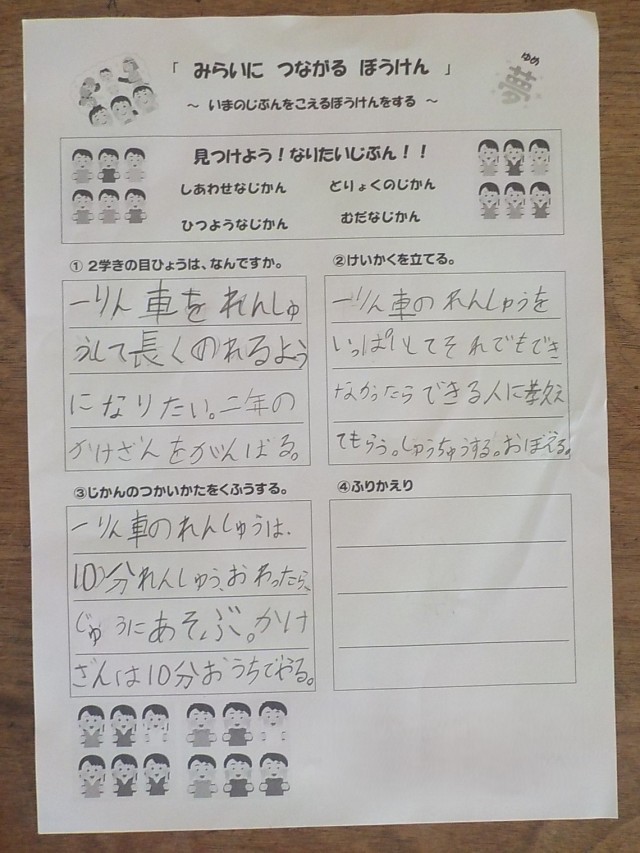 「 みらいに つながる ぼうけん 」
ゆめ
夢
～ いまのじぶんをこえるぼうけんをする ～
見つけよう！なりたいじぶん！！
しあわせなじかん とりょくのじかん
ひつようなじかん むだなじかん
① 2学きの目ひょうは、なんですか。
一りん車をれんしゅ
うして長くのれるよう
になりたい。二年の
かけざんをがんばる。
②けいかくを立てる。
一りん車のれんしゅうを
いっぱいしてそれでもでき
なかったらできる人に教え
てもらう。しゅうちゅうする。おぼえる。
③じかんのつかいかたをくふうする。
一りん車のれんしゅうは、
10分れんしゅう、おわったら、
じゅうにあそぶ。かけ
ざんは10分おうちでやる。
④ふりかえり